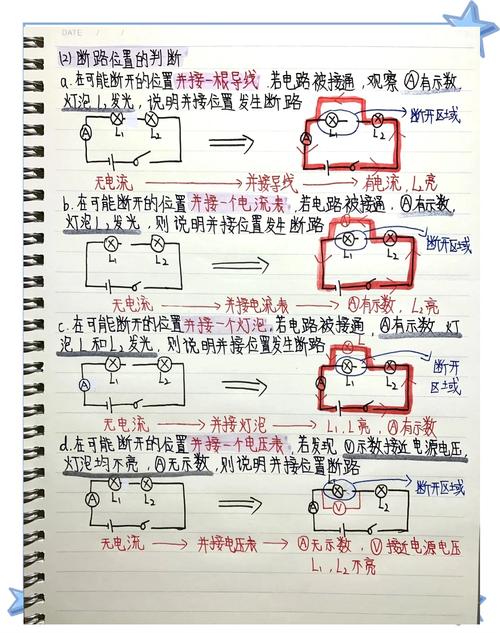 DATE / /
(2) 断路位置的判断
a.在可能断开的位置并接一根导线,若电路被接通,观察Ⓐ有示数,
灯泡L₂发光,说明并接位置发生断路
L₁ L₂ A
L₁ L₂ A
断开区域
无电流 → 并接导线 → 有电流,L₂亮
b.在可能断开的位置并接一个电流表,若电路被接通,Ⓐ有示数,
灯泡L₂发光,则说明并接位置发生断路
L₁ L₂
L₁ L₂
断开区域
无电流 → 并接电流表 → Ⓐ有示数,L₂亮
c.在可能断开的位置并接一个灯泡,若电路被接通,Ⓐ有示数,灯
泡L和L₂发光,则说明并接位置发生断路
L₁ L₂ A
L L₁ L₂ A
断开
区域
无电流 → 并接灯泡 → L₂、L亮,Ⓐ有示数
d.在可能断开的位置并接一个电压表,若发现Ⓥ示数接近电源电压,
灯泡均不亮,Ⓐ无示数,则说明并接位置断路
L₁ L₂ A
V L₂ A
断开区域
无电流 → 并接电压表 → Ⓐ无示数,Ⓥ接近电源电压
L₁,L₂不亮